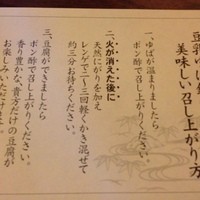 美味しい召し上がり方
一、ゆばが温まりましたら
ポン酢で召し上がりください。
二、火が消えた後に
天然にがりを加え
レンゲで二〜三回軽くかき混ぜて
約三分お待ちください。
三、豆腐ができましたら
ポン酢で召し上がりください。
香り豊かな、貴方だけの豆腐が
お楽しみいただけます。